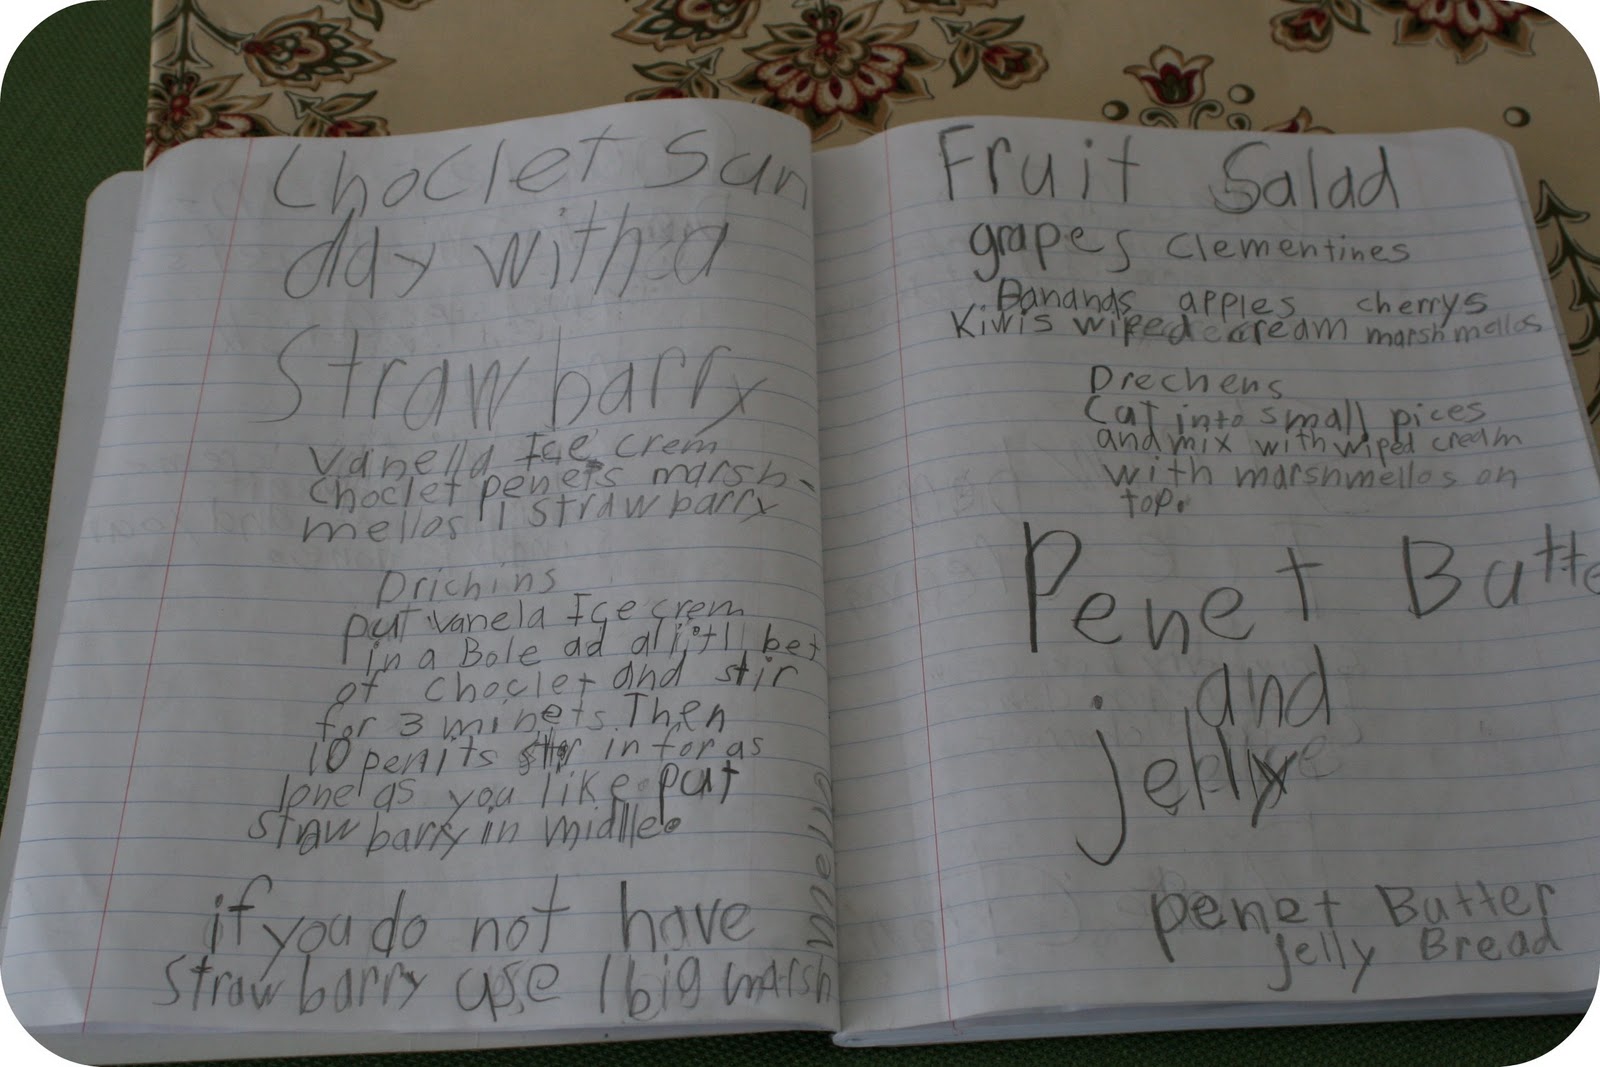 Choclet Sun
dday with a
Strawbarry
Vanella Ice crem
choclet penets marsh-
mellos 1 strawbarry
Drichins
put vanela Ice crem
in a Bole ad alittl bet
of choclet and stir
for 3 minets Then
10 penits stir in for as
lone as you like put
strawbarry in middle.
if you do not have
strawbarry use 1 big marsh
mellos
Fruit Salad
grapes Clementines
Bananas apples cherrys
Kiwis wiped cream marshmellos
Drechens
Cut into small pices
and mix with wiped cream
with marshmellos on
top.
Penet Butte
and
jelly
penet Butter
jelly Bread